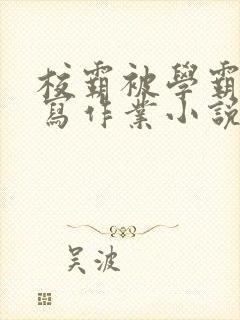 校霸被學霸
寫作業小說
吴波